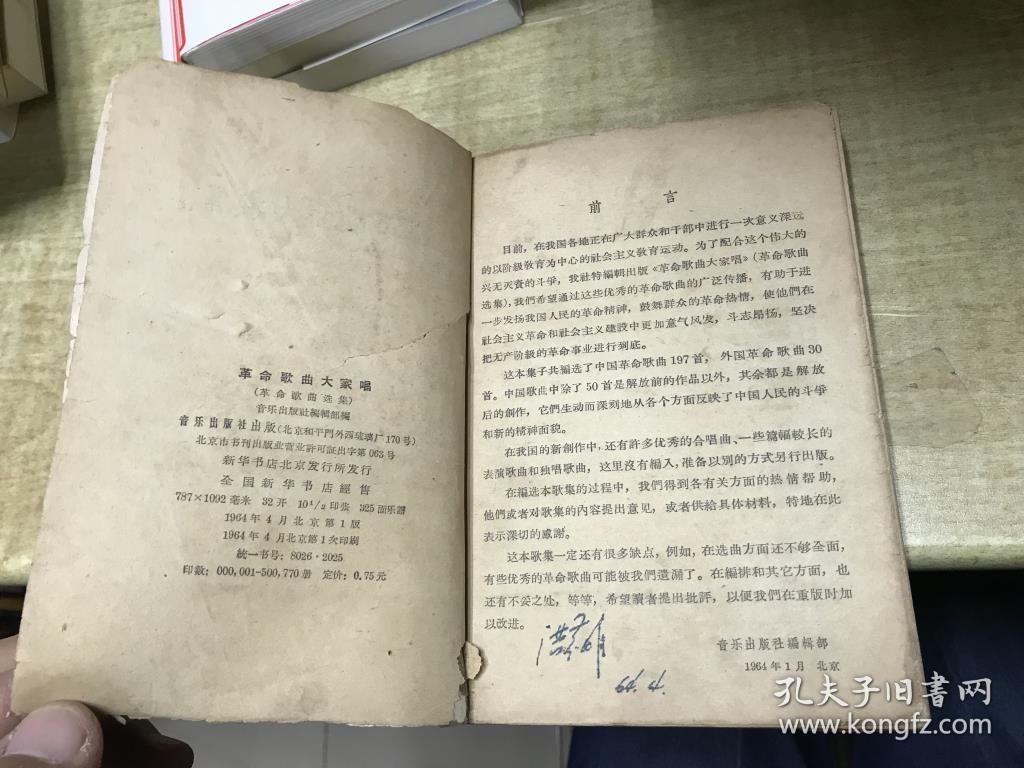 革命歌曲大家唱
(革命歌曲选集)
音乐出版社編輯部編
音乐出版社出版(北京和平門外西琉璃厂170号)
北京市书刊出版业营业許可証出字第063号
新华书店北京发行所发行
全国新华书店經售
787×1092毫米 32开 10 1/2印張 325面乐譜
1964年4月北京第1版
1964年4月北京第1次印刷
統一书号:8026·2025
印数:000,001-500,770册 定价:0.75元
前言
目前,在我国各地正在广大群众和干部中进行一次意义深远
的以阶級敎育为中心的社会主义敎育运动。为了配合这个伟大的
兴无灭資的斗爭,我社特編輯出版《革命歌曲大家唱》(革命歌曲
选集),我們希望通过这些优秀的革命歌曲的广泛传播,有助于进
一步发扬我国人民的革命精神,鼓舞群众的革命热情,使他們在
社会主义革命和社会主义建設中更加意气风发,斗志昂扬,坚决
把无产阶級的革命事业进行到底。
这本集子共編选了中国革命歌曲197首,外国革命歌曲30
首。中国歌曲中除了50首是解放前的作品以外,其余都是解放
后的創作,它們生动而深刻地从各个方面反映了中国人民的斗爭
和新的精神面貌。
在我国的新創作中,还有許多优秀的合唱曲、一些篇幅較长的
表演歌曲和独唱歌曲,这里沒有編入,准备以別的方式另行出版。
在編选本歌集的过程中,我們得到各有关方面的热情帮助,
他們或者对歌集的內容提出意见,或者供給具体材料,特地在此
表示深切的感謝。
这本歌集一定还有很多缺点,例如,在选曲方面还不够全面,
有些优秀的革命歌曲可能被我們遺漏了。在編排和其它方面,也
还有不妥之处,等等,希望讀者提出批評,以便我們在重版时加
以改进。
音乐出版社編輯部
1964年1月 北京
64.4.
孔夫子旧书网
www.kongfz.com